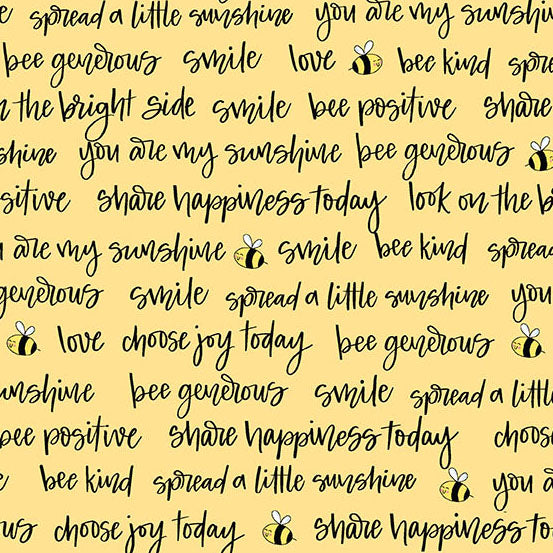 e spread a little sunshine you are my sunshin
bee generous smile love bee kind spre
n the bright side smile bee positive share
shine you are my sunshine bee generous
sitive share happiness today look on the b
u are my sunshine smile bee kind spread
generous smile spread a little sunshine you
love choose joy today bee generous
unshine bee generous smile spread a littl
bee positive share happiness today choos
e bee kind spread a little sunshine you a
ous choose joy today share happiness to